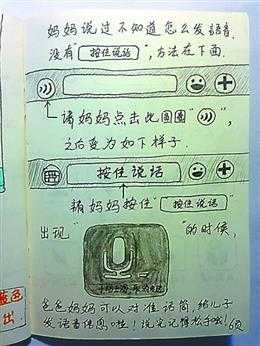 妈妈说过不知道怎么发語音
没有"按住说话",方法在下面.
请妈妈点击此圆圈" ",
之后变为如下样子.
按住说话
请妈妈按住"按住说话"
出现" "的时候,
爸爸妈妈可以对准话筒,给儿子
发语音信息啦!说完记得松手哦!
蓝色
出